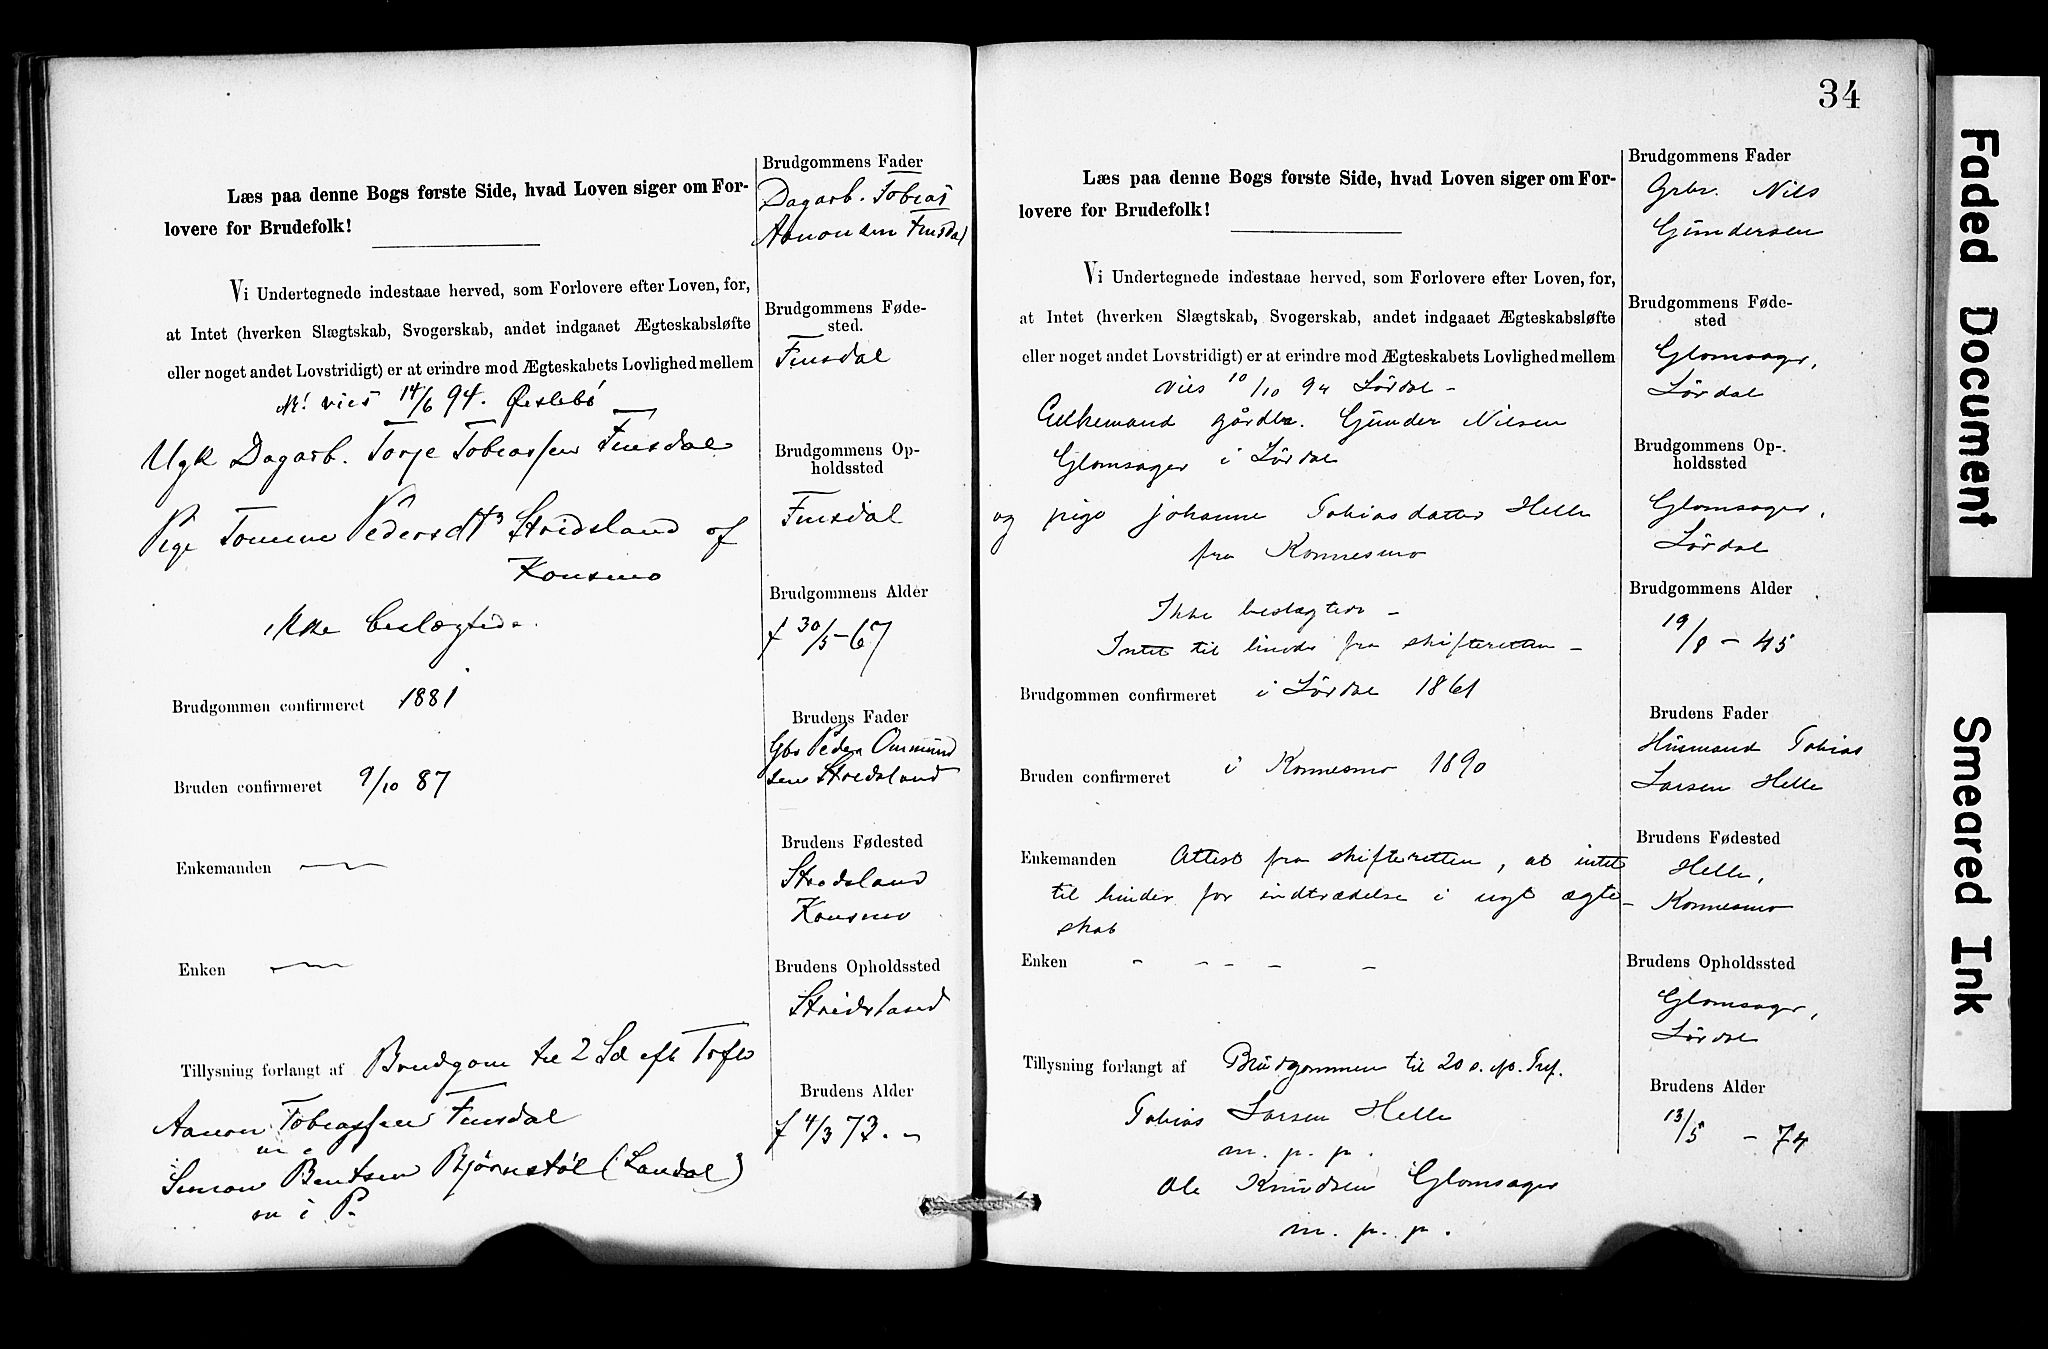 Læs paa denne Bogs første Side, hvad Loven siger om For-
lovere for Brudefolk!
Vi Undertegnede indestaae herved, som Forlovere efter Loven, for,
at Intet (hverken Slægtskab, Svogerskab, andet indgaaet Ægteskabsløfte
eller noget andet Lovstridigt) er at erindre mod Ægteskabets Lovlighed mellem
vies 14/6 94. Øislebö
Ugk Dagarb. Torje Tobiassen Finsdal
Pige Tomine Pedersdtr Stridsland af
Konsmo
ikke beslægtede.
Brudgommen confirmeret 1881
Bruden confirmeret 9/10 87
Enkemanden —
Enken —
Tillysning forlangt af Brudgom til 2 Sd eft Trefo
Aanon Tobiassen Finsdal
Simon Bentsen Bjørnstøl (Laudal)
m i P.
Brudgommens Fader
Dagarb. Tobias
Aanonsen Finsdal
Brudgommens Føde-
sted.
Finsdal
Brudgommens Op-
holdssted
Finsdal
Brudgommens Alder
f 30/5-67
Brudens Fader
Gbr Peder Ommund
sen Stridsland
Brudens Fødested
Stridsland
Konsmo
Brudens Opholdssted
Stridsland
Brudens Alder
f 4/3 73. -
34
Læs paa denne Bogs første Side, hvad Loven siger om For-
lovere for Brudefolk!
Vi Undertegnede indestaae herved, som Forlovere efter Loven, for,
at Intet (hverken Slægtskab, Svogerskab, andet indgaaet Ægteskabsløfte
eller noget andet Lovstridigt) er at erindre mod Ægteskabets Lovlighed mellem
vies 10/10 94 Lördal -
Enkemand gårdbr. Gunder Nilsen
Glomsager i Lördal
og pige Johanne Tobiasdatter Helle
fra Konnesmo
Ikke beslægtede -
Intet til hinder fra skifteretten -
Brudgommen confirmeret i Lördal 1861
Bruden confirmeret i Konnesmo 1890
Enkemanden Attest fra skifteretten, at intet
til hinder for indtrædelse i nyt ægte-
skab
Enken - - - - -
Tillysning forlangt af Brudgommen til 20 s. ep. Tref.
Tobias Larsen Helle
m. p. p.
Ole Knudsen Glomsager
m. p. p.
Brudgommens Fader
Grbr. Nils
Gundersen
Brudgommens Føde-
sted
Glomsager,
Lördal
Brudgommens Op-
holdssted
Glomsager,
Lördal
Brudgommens Alder
19/8 - 45
Brudens Fader
Husmand Tobias
Larsen Helle
Brudens Fødested
Helle,
Konnesmo
Brudens Opholdssted
Glomsager,
Lördal
Brudens Alder
13/5 - 74
Faded Document
Smeared Ink